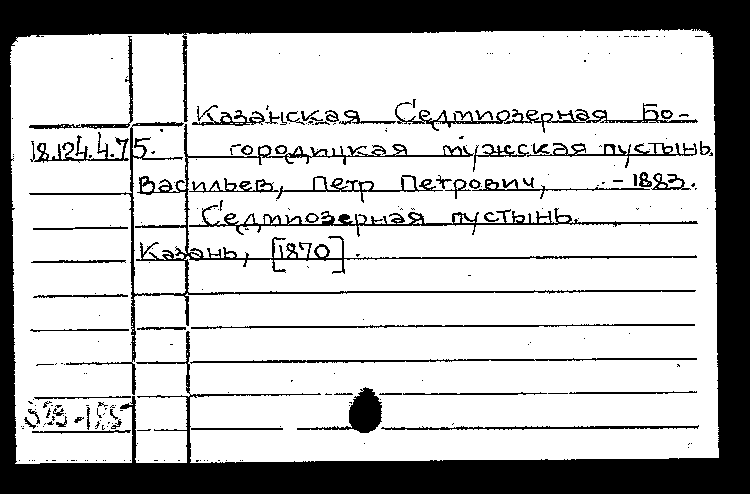 Казанская Седмиозерная Бо-
18.124.4.75. городицкая мужская пустынь.
Васильев, Петр Петрович, -1883.
Седмиозерная пустынь.
Казань, [1870].